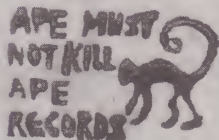 APE MUST
NOT KILL
APE
RECORDS